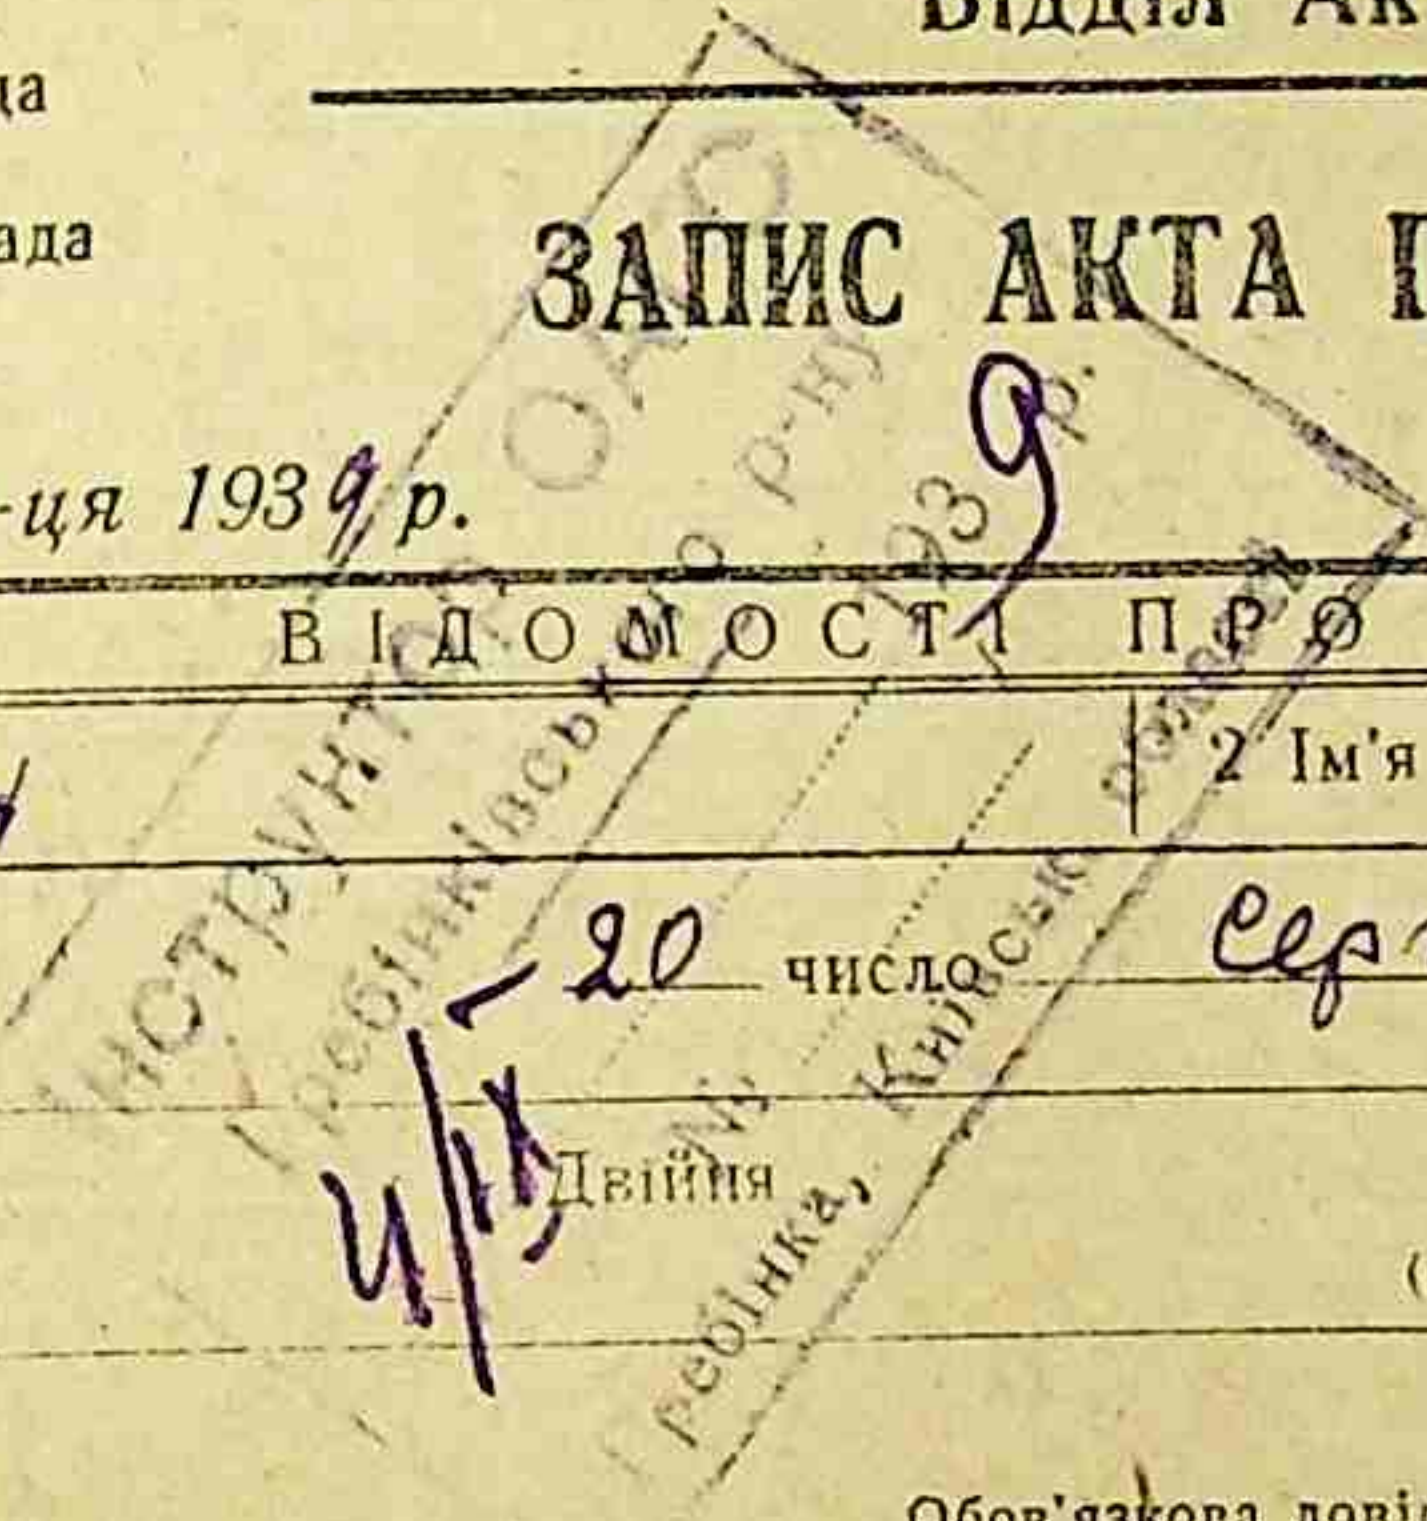 Відділ Ак
да
ада
ЗАПИС АКТА П
-ця 1939 р.
ВІДОМОСТІ ПРО
2 Ім'я
20 число сер
4/IX
Двійня
Обов'язкова довід
Інструнтор ОАГС
Гребінківського р-ну
1939 р.
№
Гребінка, Київської области